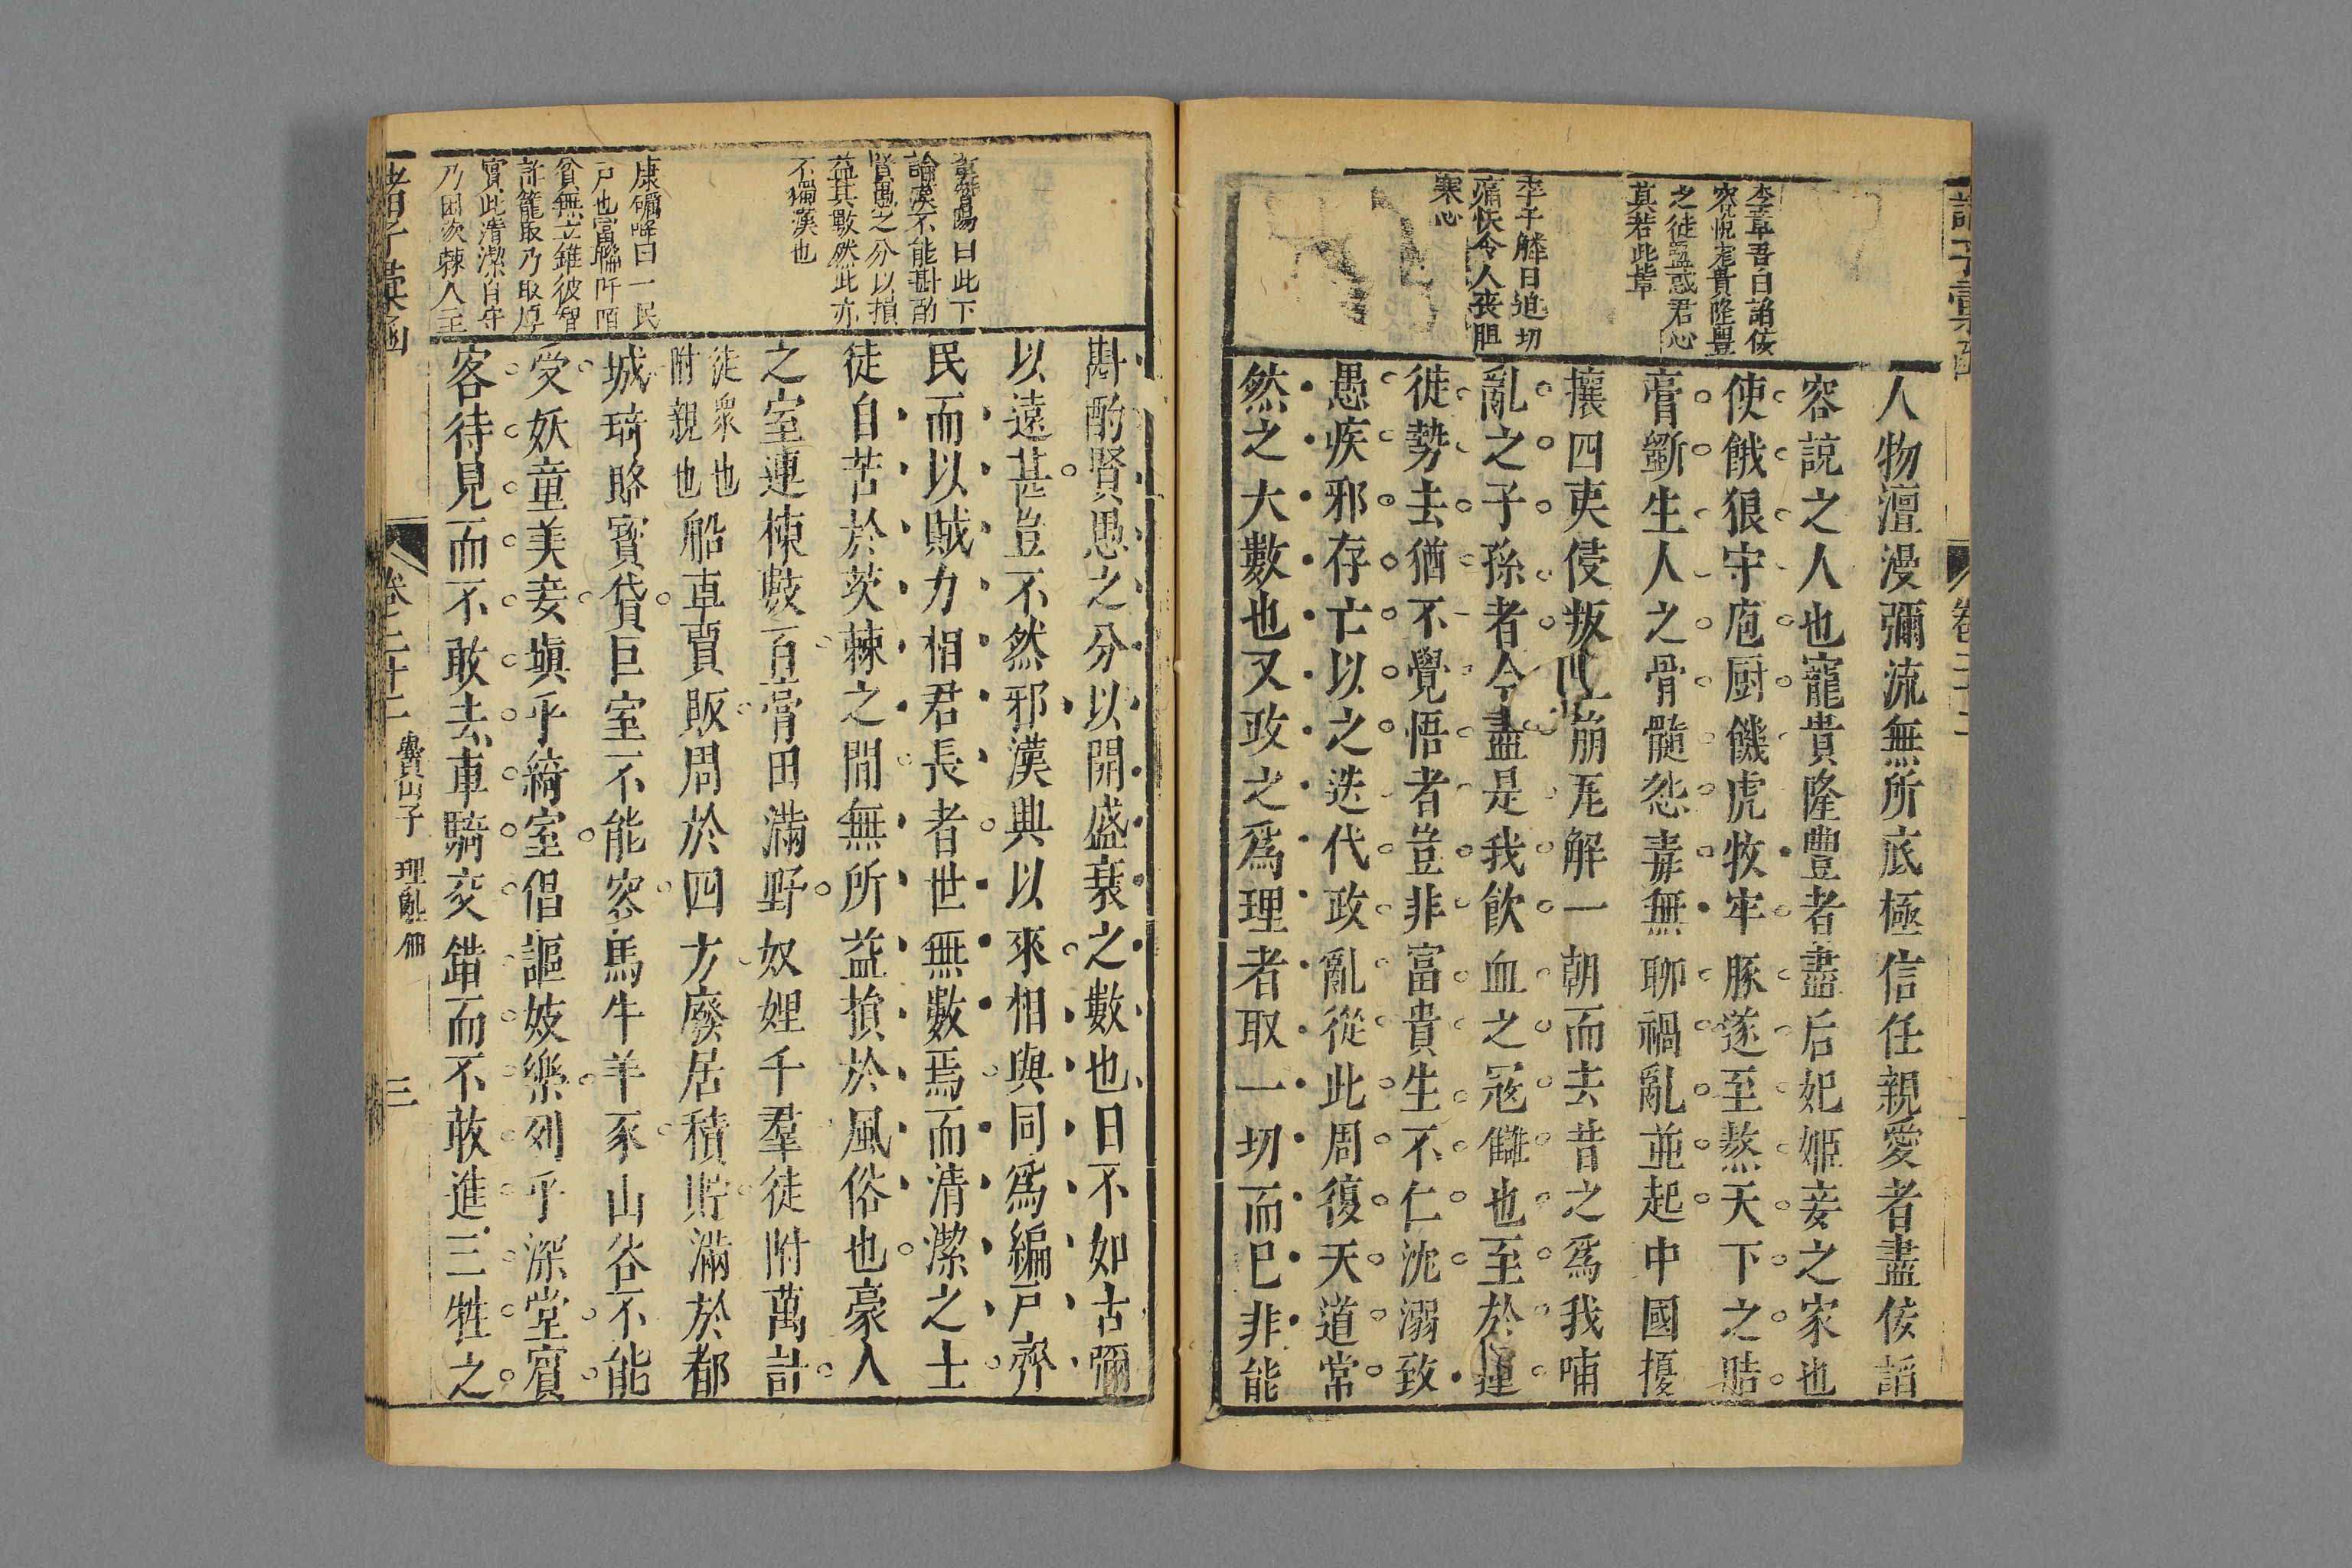 李章吾曰諂佞
容悅尨貴隆豐
之徒蠱惑君心
莫若此輩
李子麟曰迫切
痛快令人喪胆
寒心
人物澶漫彌流無所底極信任親愛者盡佞諂
容説之人也寵貴隆豐者盡后妃姬妾之家也
使餓狼守庖厨饑虎牧牢豚遂至熬天下之脂
膏斵生人之骨髓怨毒無聊禍亂並起中國擾
攘四夷侵叛土崩瓦解一朝而去昔之爲我哺
亂之子孫者今盡是我飲血之冦讎也至於運
徙勢去猶不覺悟者豈非富貴生不仁沈溺致
愚疾邪存亡以之迭代政亂從此周復天道常
然之大數也又政之爲理者取一切而巳非能
曰此下
論漢不能斟酌
賢愚之分以損
益其數然此亦
不獨漢也
康礪峰曰一民
戸也富聯阡陌
貧無立錐彼智
詐籠取乃取厚
實此清潔自守
乃困茨棘人至
斟酌賢愚之分以開盛衰之數也日不如古彌
以遠甚豈不然邪漢興以來相與同爲編戸齊
民而以賊力相君長者世無數焉而清潔之士
徒自苦於茨棘之間無所益損於風俗也豪人
之室連棟數百膏田滿野奴婢千羣徒附萬計
徒衆也
附親也
船車賈販周於四方廢居積貯滿於都
城琦賂寳貨巨室不能容馬牛羊豕山谷不能
受妖童美妾塡乎綺室倡謳妓樂列乎深堂賓
客待見而不敢去車騎交錯而不敢進三牲之
諸子彙函
卷二十二
理亂
三